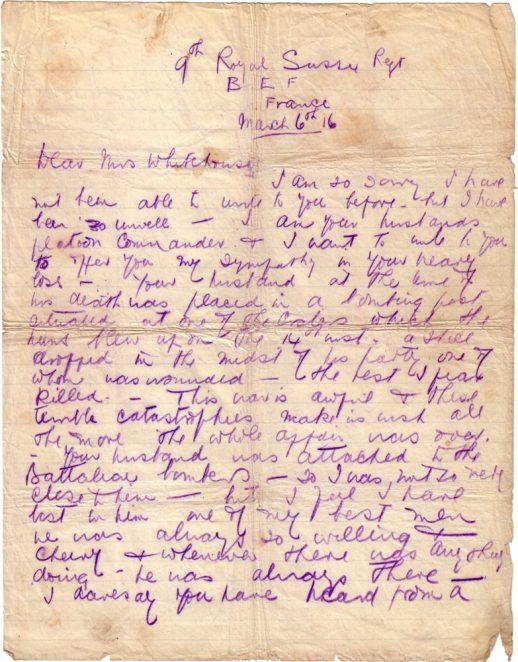 9th Royal Sussex Regt
B E F
France
March 6th 16
Dear Mrs Whitehouse
I am so sorry I have
not been able to write to you before - but I have
been so unwell - I am your husbands
platoon Commander & I want to write to you
to offer you my sympathy in your heavy
loss - Your husband at the time of
his death was placed in a bombing post
situated at one of the craters which the
huns blew up on the 14th inst. a shell
dropped in the midst of his party one of
whom was wounded - the rest I fear
killed. - This war is awful & these
terrible catastrophies make us wish all
the more the whole affair was over.
- Your husband was attached to the
Battalion bombers - so I was not so very
close to them - but I feel I have
lost in him one of my best men
he was always so willing &
cheery & whenever there was anything
doing - he was always there -
I daresay you have heard from a